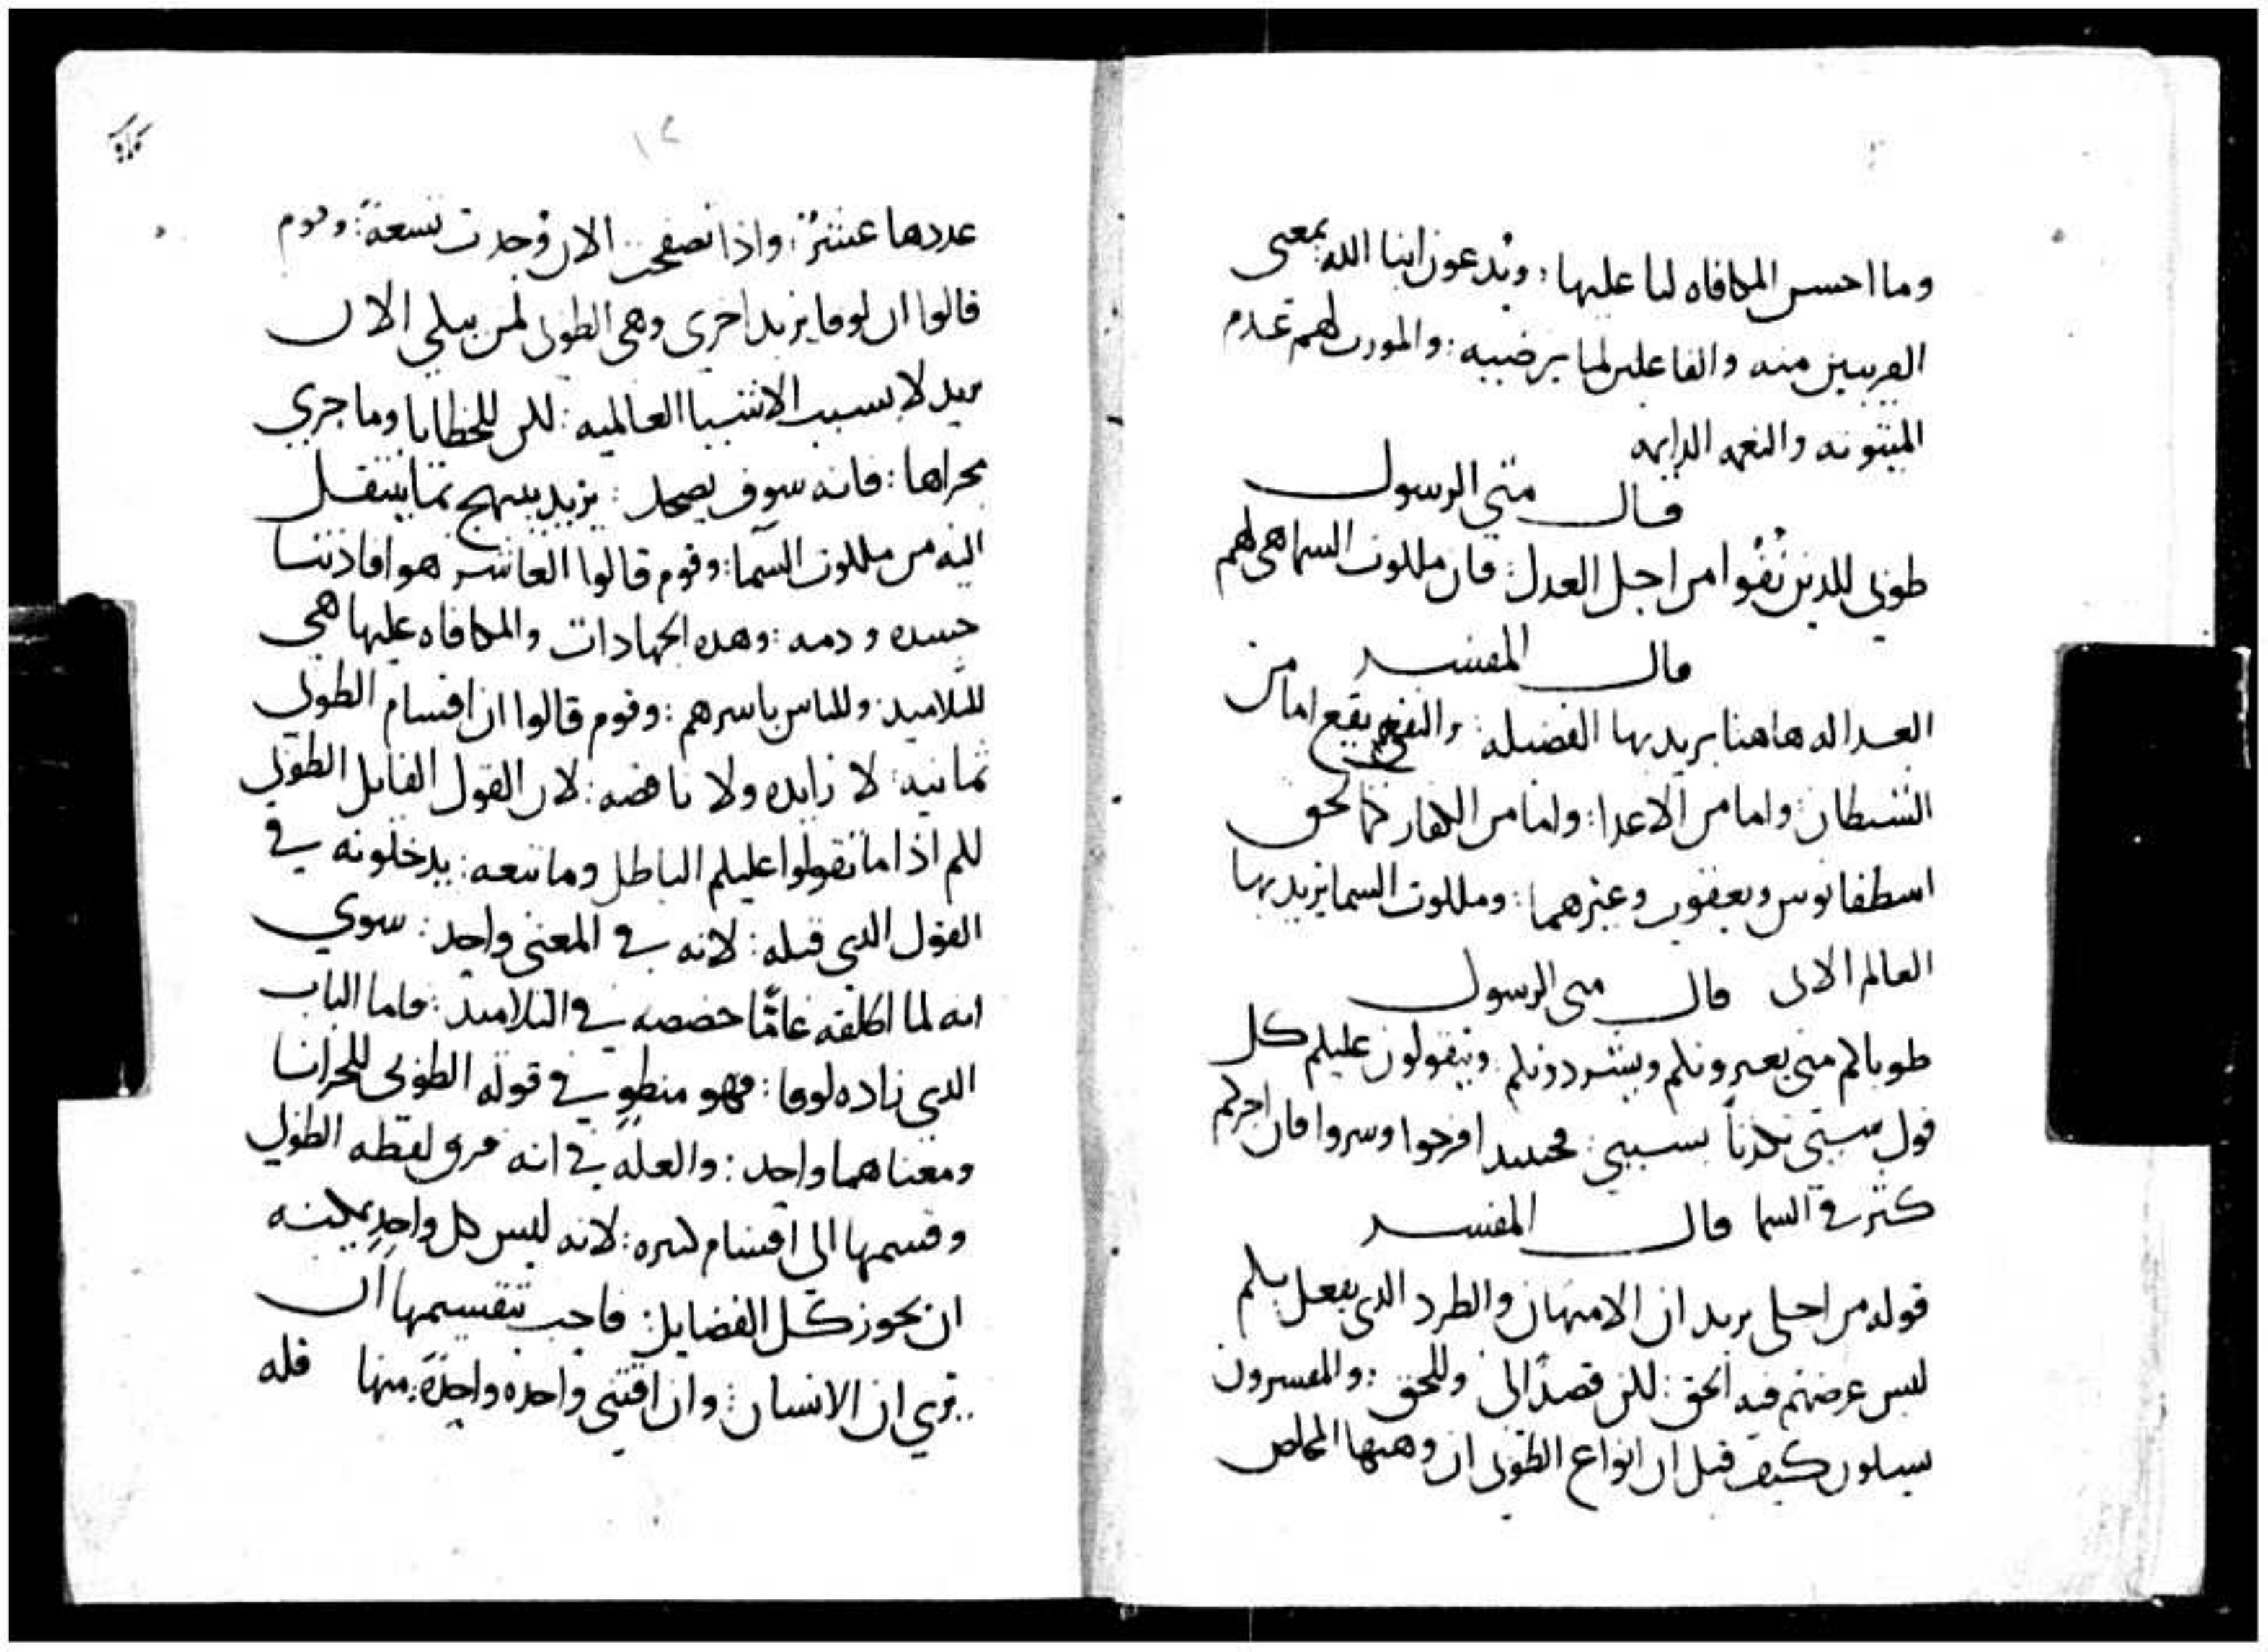 وما احسن المكافاه لنا عليها : ويدعون ابنا الله بمعنى
القريبين منه والفاعلين لما يرضيه : والمورث لهم عدم
المينوته والنعمه الدايمه
قال متي الرسول
طوبي للدين نُفُوا من اجل العدل : فان ملكوت السما هي لهم
قال المفسر
العداله هاهنا يريد بها الفضيله : والنفي يقع اما من
الشيطان : واما من الاعدا : واما من الكفار كما لحق
اسطفانوس ويعقوب وغيرهما : وملكوت السما يريد بها
العالم الاتى قال متى الرسول
طوباكم متى يعيرونكم ويشردونكم : ويتقولون عليكم كل
قول سيّي كذباً بسببي : فحينيد افرحوا وسروا فان اجركم
كثر في السما قال المفسر
قوله من اجلي يريد ان الامتهان والطرد الدي يفعل بكم
ليس غرضهم فيه الحق : لكن قصداً لي وللحق : والمفسرون
يسلون كيف قيل ان انواع الطوبى ان وهبها المخلص
١٢
عددها عشرٌ : واذا تصفحت الان وُجدت تسعةً : وقوم
قالوا ان لوقا يزيد اخرى وهي الطوبى لمن يبكي الان
يريد لا بسبب الاشيا العالميه : لكن للخطايا وما جري
مجراها : فانه سوف يضحك : يزيد يبتهج بما ينتقل
اليه من ملكوت السمآ : وقوم قالوا العاشر هو افادتنا
جسده ودمه : وهده الجهادات والمكافاه عليها هي
للتلاميد : وللناس باسرهم : وقوم قالوا ان اقسام الطوبى
ثمانيه : لا زايده ولا ناقصه : لان القول القايل الطوبى
لكم اذا ما تقولوا عليكم الباطل وما تبعه : يدخلونه في
القول الدي قبله : لانه في المعنى واحد : سوي
انه لما اطلقه عامّاً خصصه في التلاميد : فاما الباب
الدي زاده لوقا : فهو منطوٍ في قوله الطوبى للحزانا
ومعناهما واحد : والعله في انه فرق لفظه الطوبى
وقسمها الى اقسام كثيره : لانه ليس كل واحدٍ يمكنه
ان يحوز كل الفضايل : فاحب بتقسيمها ان
يري ان الانسان : وان اقتني واحده واحدةً منها فله